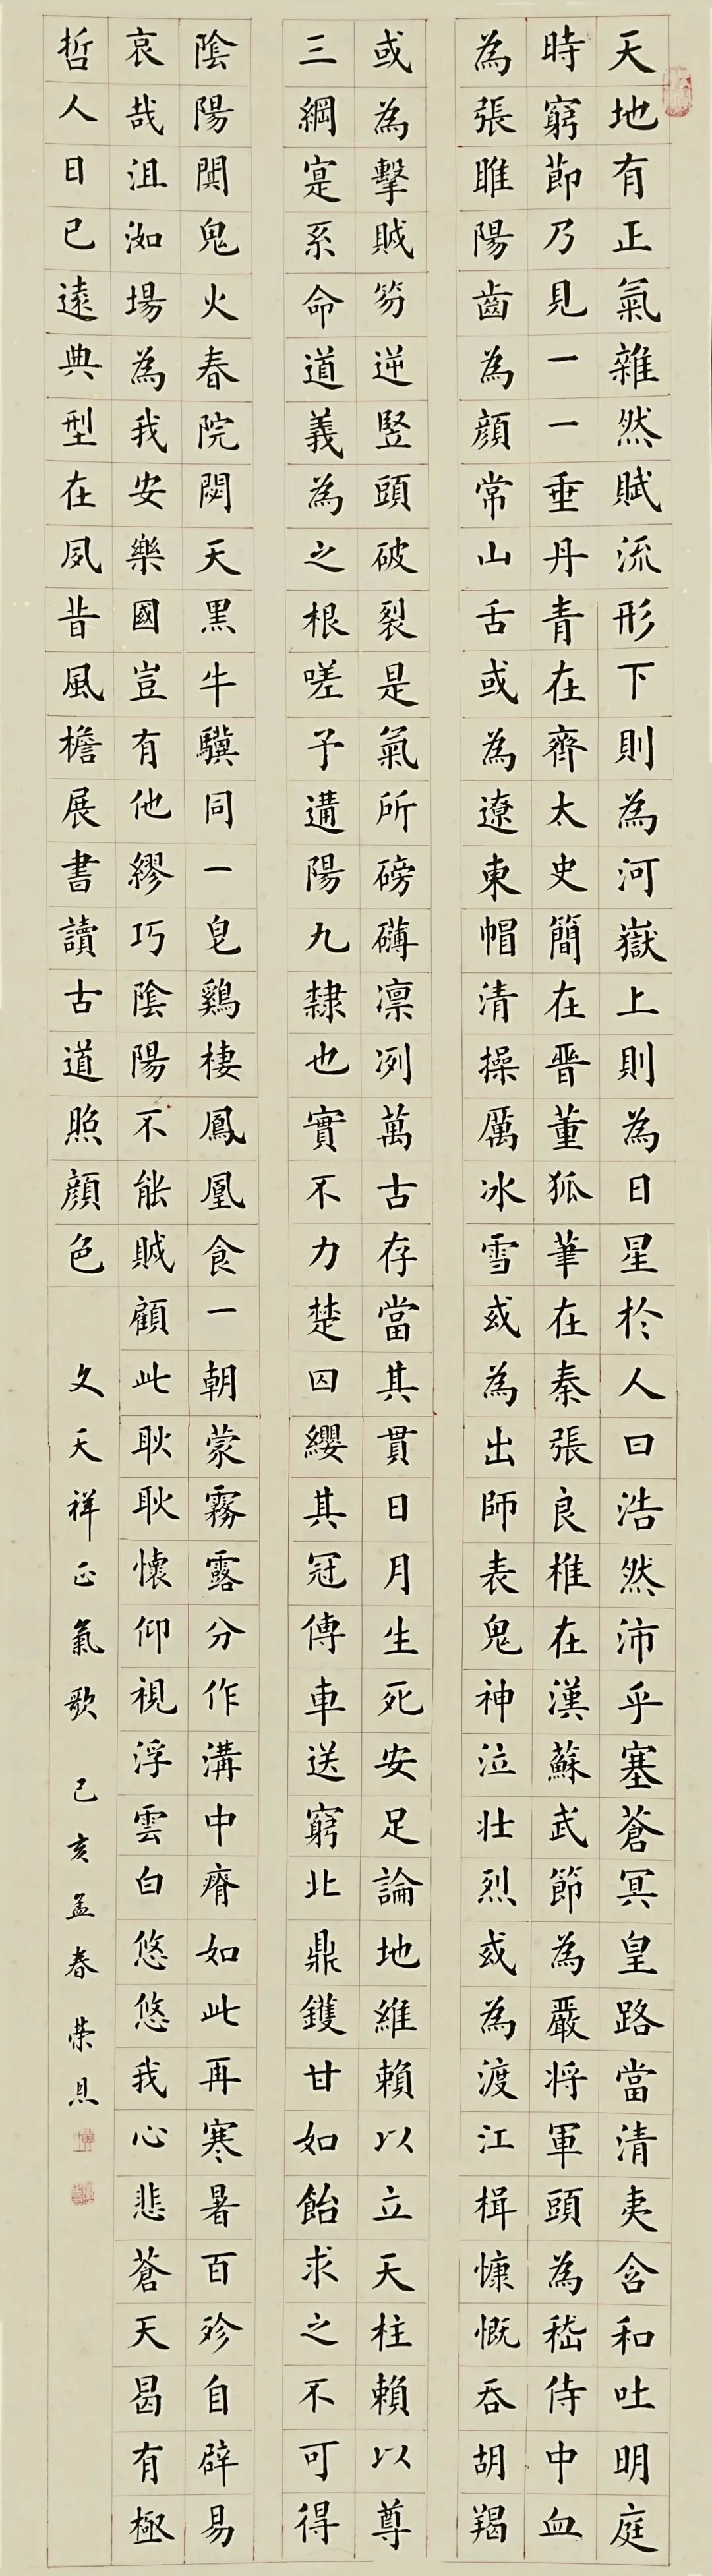 天地有正氣雜然賦流形下則為河嶽上則為日星於人曰浩然沛乎塞蒼冥皇路當清夷含和吐明庭
時窮節乃見一一垂丹青在齊太史簡在晉董狐筆在秦張良椎在漢蘇武節為嚴將軍頭為嵇侍中血
為張睢陽齒為顏常山舌或為遼東帽清操厲冰雪或為出師表鬼神泣壯烈或為渡江楫慷慨吞胡羯
或為擊賊笏逆豎頭破裂是氣所磅礴凜冽萬古存當其貫日月生死安足論地維賴以立天柱賴以尊
三綱寔系命道義為之根嗟予遘陽九隸也實不力楚囚纓其冠傳車送窮北鼎鑊甘如飴求之不可得
陰陽闃鬼火春院閟天黑牛驥同一皂鷄棲鳳凰食一朝蒙霧露分作溝中瘠如此再寒暑百沴自辟易
哀哉沮洳場為我安樂國豈有他繆巧陰陽不能賊顧此耿耿懷仰視浮雲白悠悠我心悲蒼天曷有極
哲人日已遠典型在夙昔風檐展書讀古道照顏色 文天祥正氣歌 己亥孟春 榮